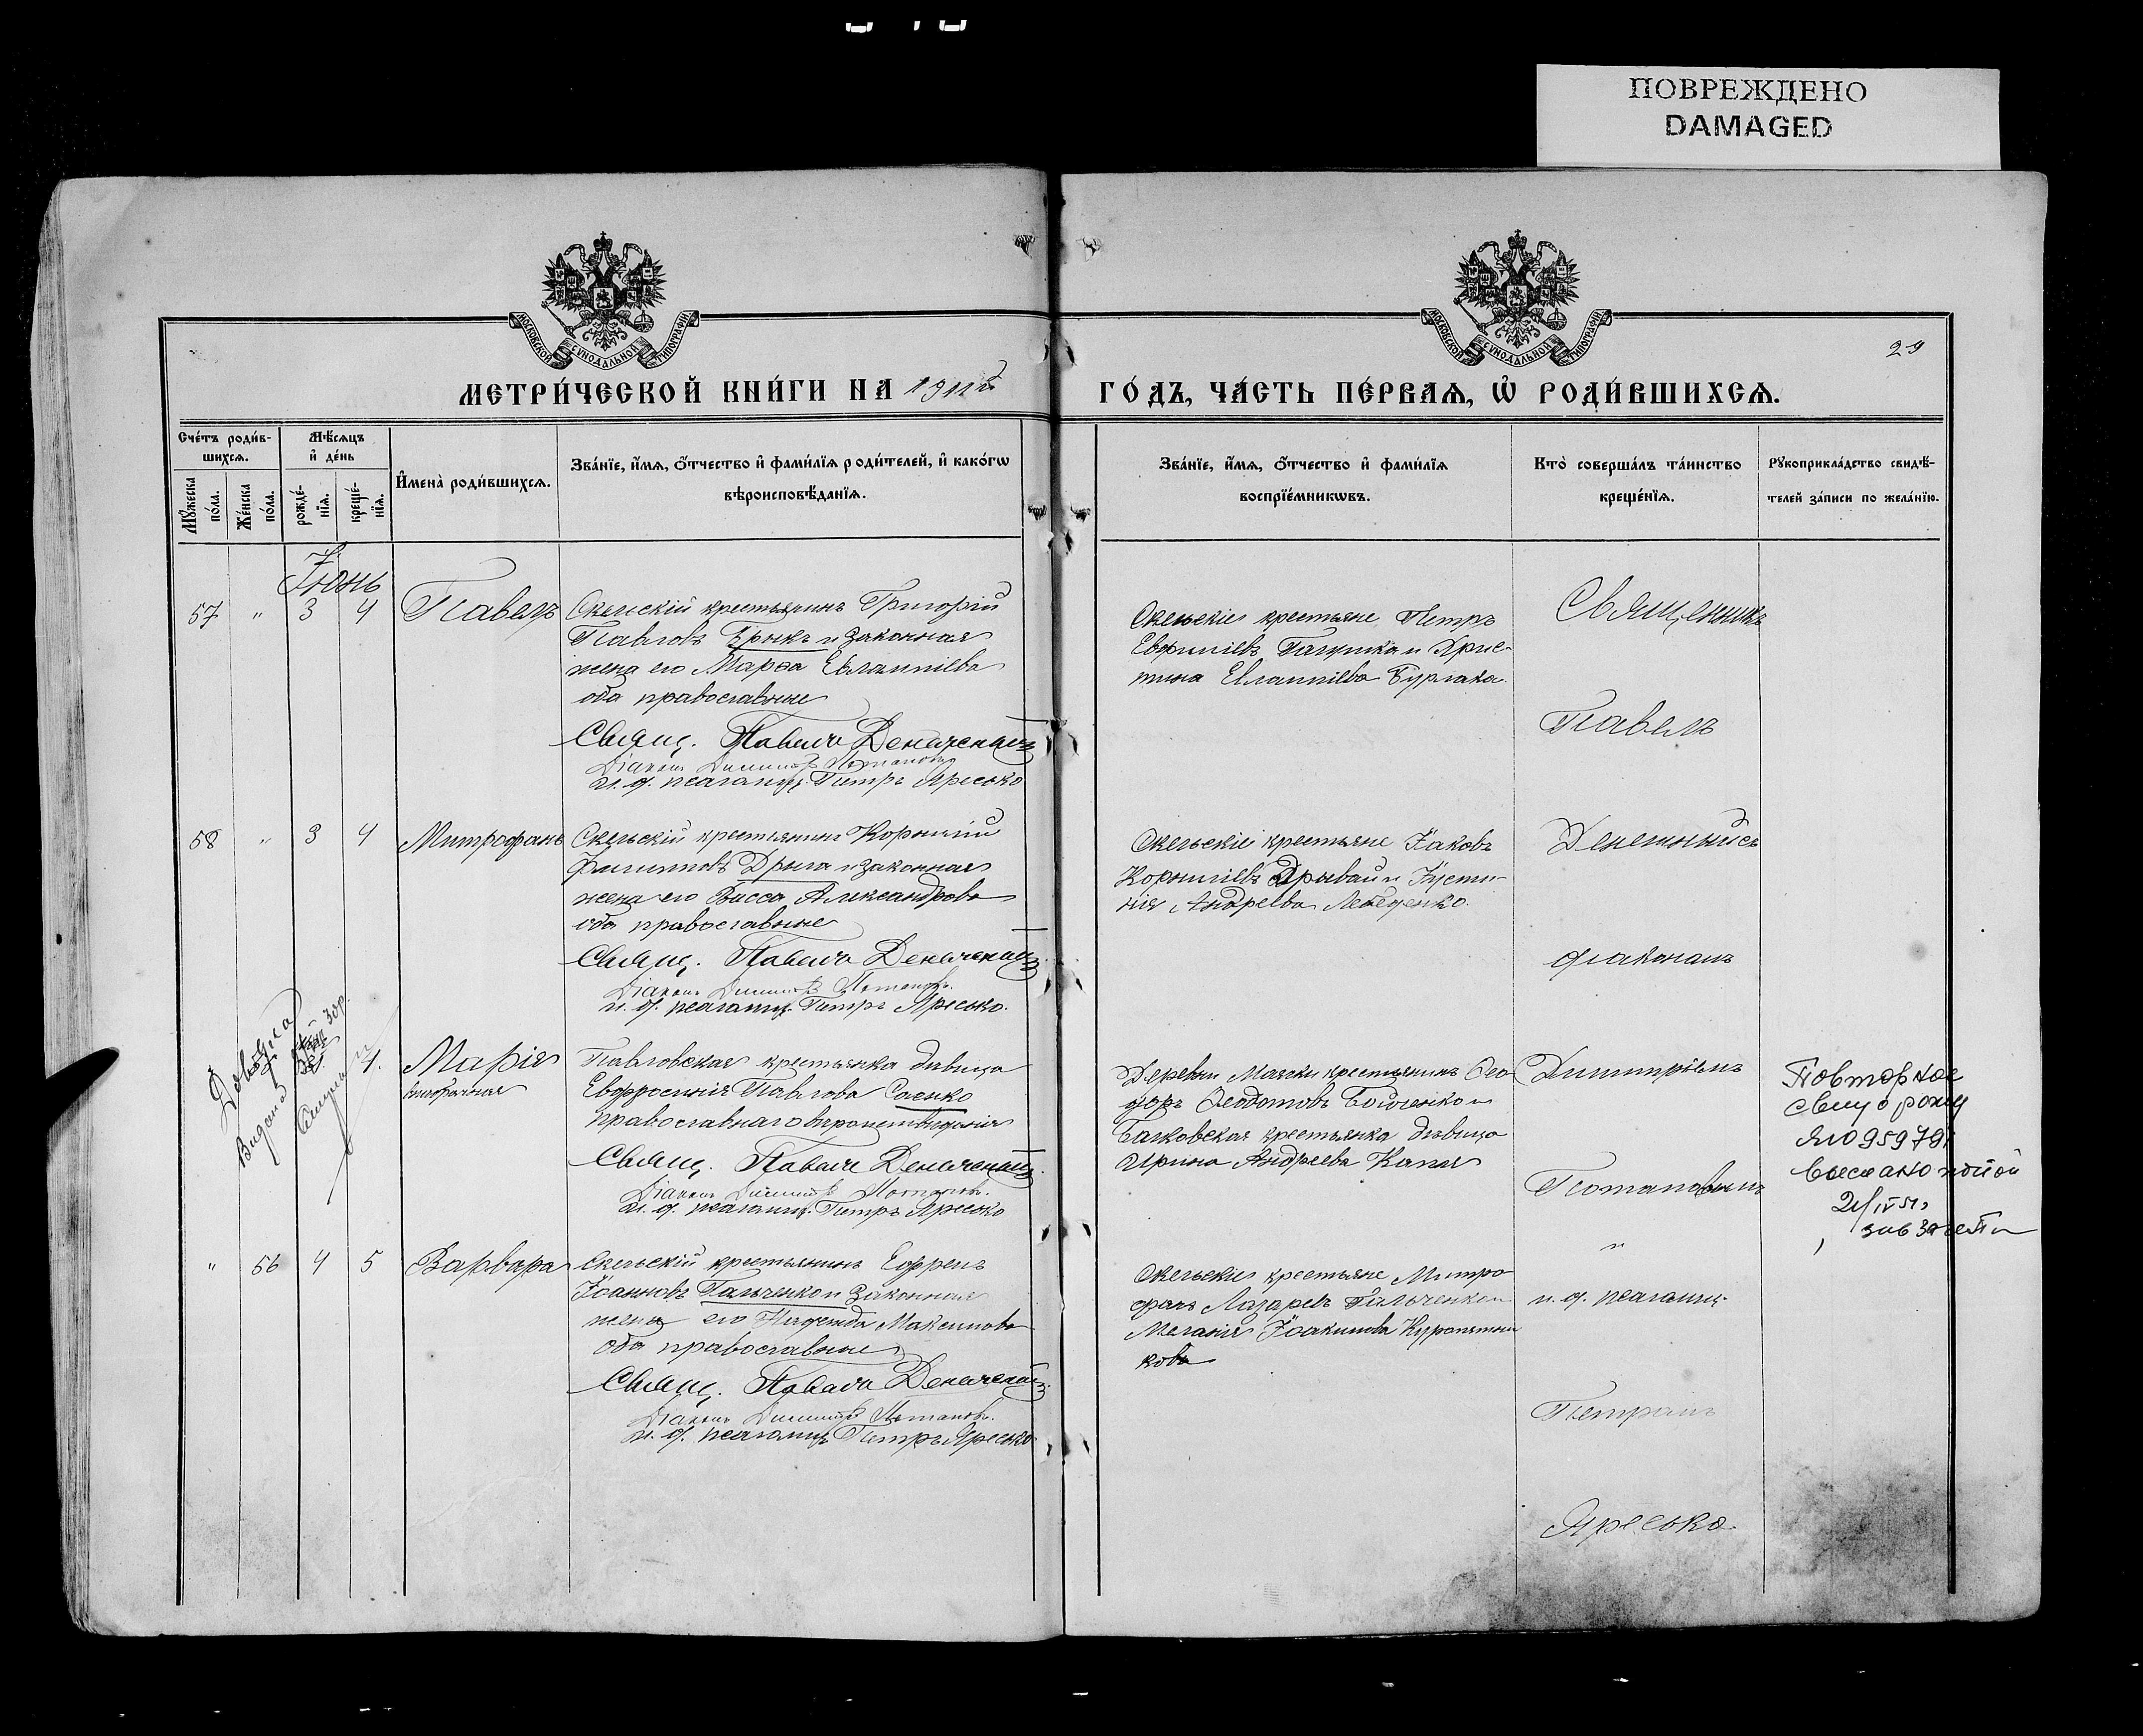 ПОВРЕЖДЕНО
DAMAGED
МОСКОВСКОЙ СѴНОДАЛЬНОЙ ТИПОГРАФІИ
МОСКОВСКОЙ СѴНОДАЛЬНОЙ ТИПОГРАФІИ
29
МЕТРИ́ЧЕСКОЙ КНИ́ГИ НА 1911й
ГО́ДЪ, ЧА́СТЬ ПЕ́РВАѦ, Ѡ҆ РОДИ́ВШИХСѦ.
Сче́тъ роди́в-
шихсѧ.
Мꙋ́жеска по́ла.
Же́нска по́ла.
Мѣ́сѧцъ
и҆ де́нь
рожде́-
нїѧ.
креще́-
нїѧ.
И҆мена̀ роди́вшихсѧ.
Зва́нїе, и҆́мѧ, ѻ҆́тчество и҆ фами́лїѧ роди́телей, и҆ како́гѡ
вѣроисповѣ́данїѧ.
Зва́нїе, и҆́мѧ, ѻ҆́тчество и҆ фами́лїѧ
воспрїе́мникѡвъ.
Кто̀ соверша́лъ та́инство
креще́нїѧ.
Рꙋкоприкла́дство свидѣ́-
телей за́писи по жела́нїю.
Іюнь
57 " 3 4 Павелъ
Скельскій крестьянинъ Григорій
Павловъ Брыкъ и законная
жена его Марѳа Евлампіева
оба православные
Свящ. Павелъ
Діаконъ Димитрій Потаповъ
и. д. псаломщ. Петръ Яресько
Скельскіе крестьяне Петръ
Евфиміевъ и Хрис-
тина Евлампіева Бурлака.
Священникъ
Павелъ
58 " 3 4 Митрофанъ
Скельскій крестьянинъ Корнилій
Филипповъ Дрыга и законная
жена его Васса Александрова
оба православные
Свящ. Павелъ
Діаконъ Димитрій Потаповъ.
и. д. псаломщ. Петръ Яресько.
Скельскіе крестьяне Іаковъ
Корниліевъ и Іусти-
нія Андреева Лебеденко.
съ
діакономъ
Видана
4. Марія
внебрачная
Павловская крестьянка дѣвица
Евфросинія Павлова Саенко
православнаго вѣроисповѣданія
Свящ. Павелъ
Діаконъ Димитрій Потаповъ.
и. д. псаломщ. Петръ Яресько
Деревни Маячки крестьянинъ Ѳео
доръ Ѳеодотовъ Бойченко и
крестьянка дѣвица
Ирина Андреева
Димитріемъ
Потаповымъ
и
Повторное
свид о рожд
ЯЮ 959791
21/IV 51
" 56 4 5 Варвара
Скельскій крестьянинъ Ефремъ
Іоанновъ Пальченко и законная
жена его Надежда Максимова
оба православные
Свящ. Павелъ
Діаконъ Димитрій Потаповъ.
и. д. псаломщ. Петръ Яресько
Скельскіе крестьяне Митро
фанъ Лазаревъ Пальченко и
Меланія Іоакимова Куропятни
кова
и. д. псаломщ.
Петромъ
Яресько.